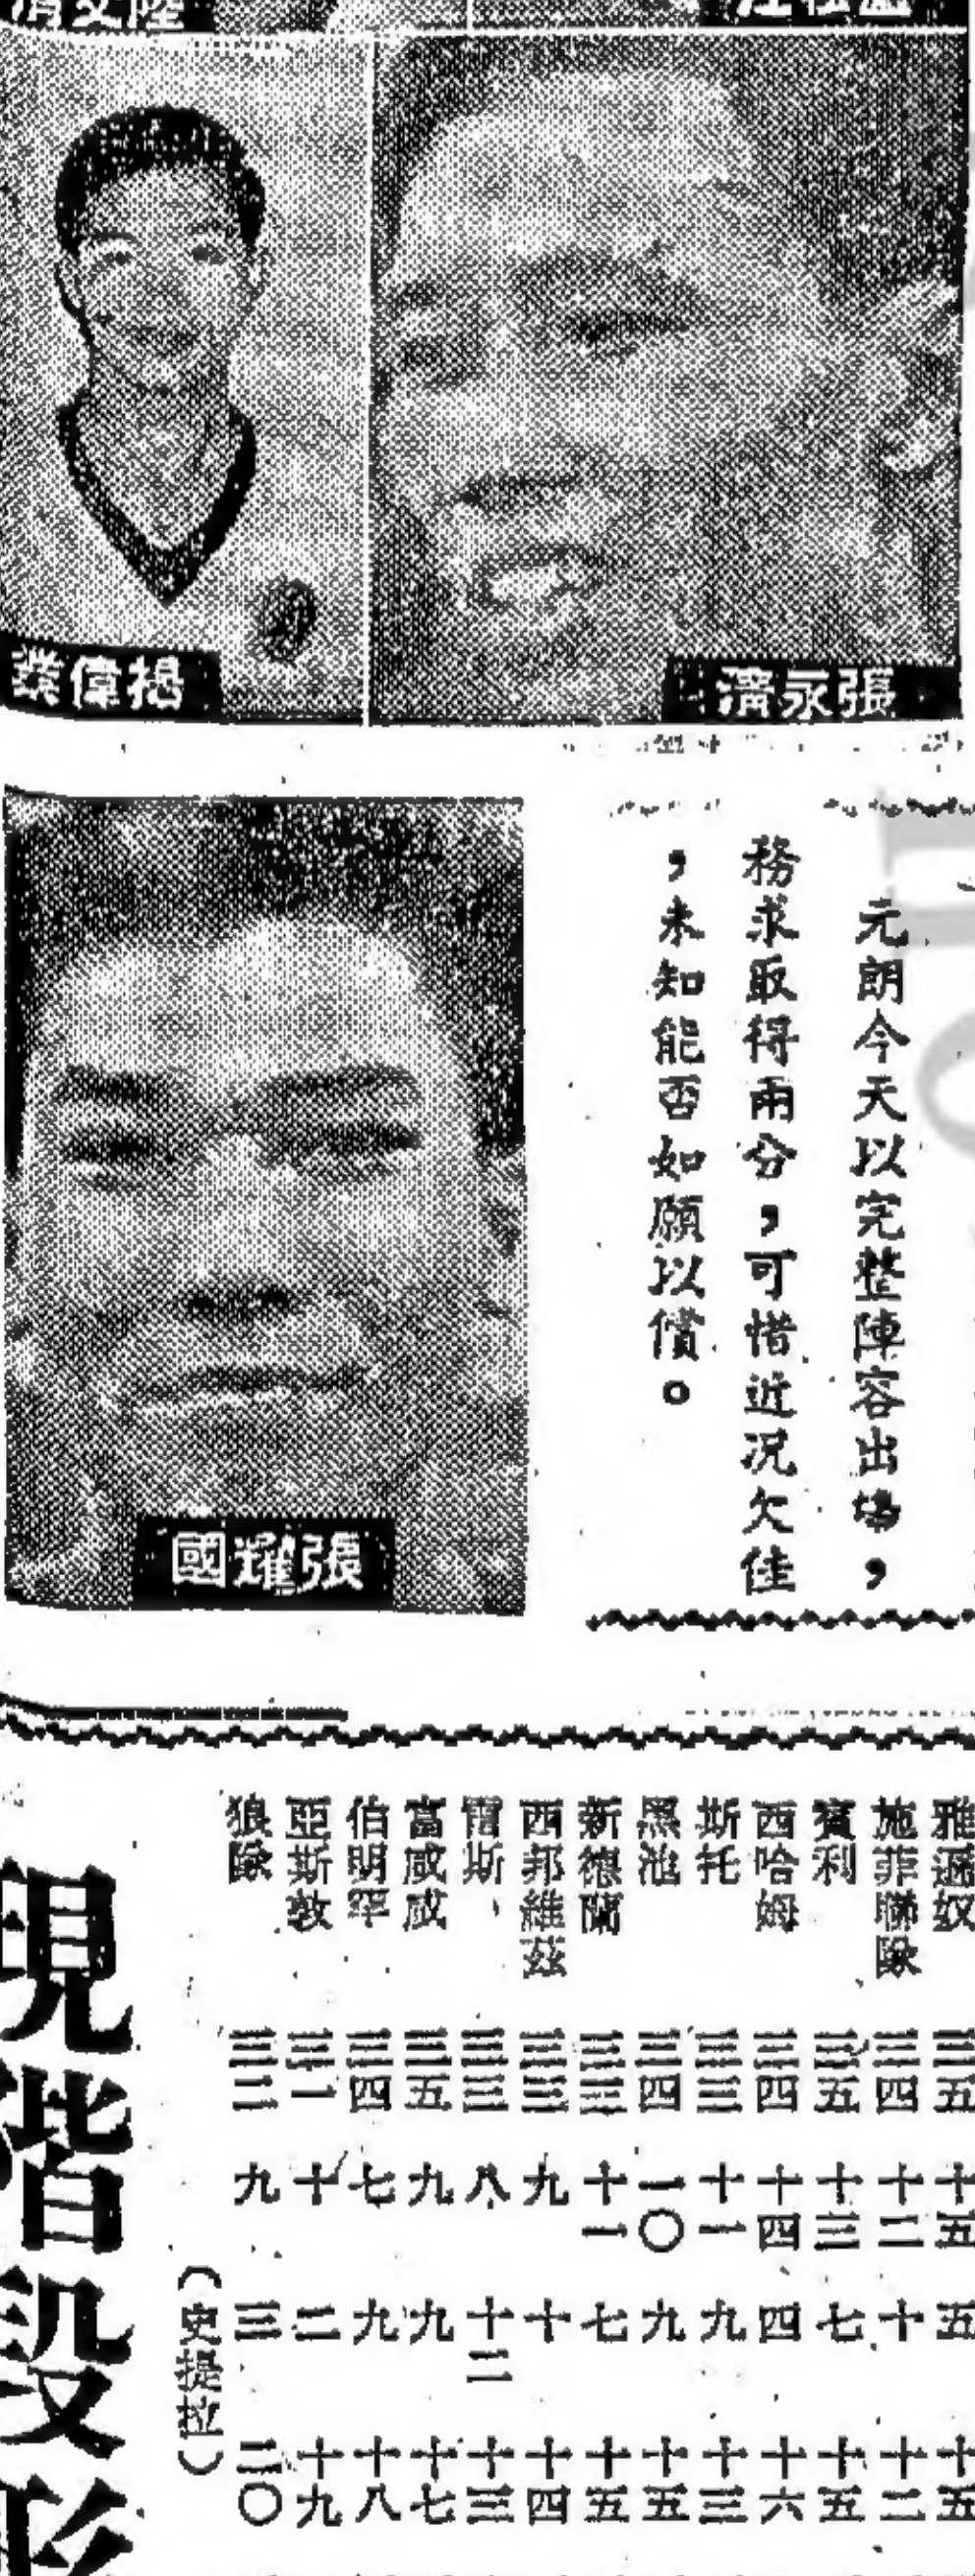 張永濟
楊偉業
張耀國
元朗今天以完整陣容出場，
務求取得兩分，可惜近況欠佳
，未知能否如願以償。
雅遜奴 三五 十五 五 十五
施菲聯隊 三四 十二 十 十二
賓利 三五 十三 七 十五
西哈姆 三四 十四 四 十六
斯托 三三 十一 九 十三
黑池 三四 一〇 九 十五
新德蘭 三三 十一 七 十五
西邦維茲 三三 九 十 十四
雷斯 三三 八 十二 十三
富咸 三五 九 九 十七
伯明罕 三四 七 九 十八
亞斯敦 三一 十 二 十九
狼隊 三二 九 三 二〇
（史提拉）
現階段形